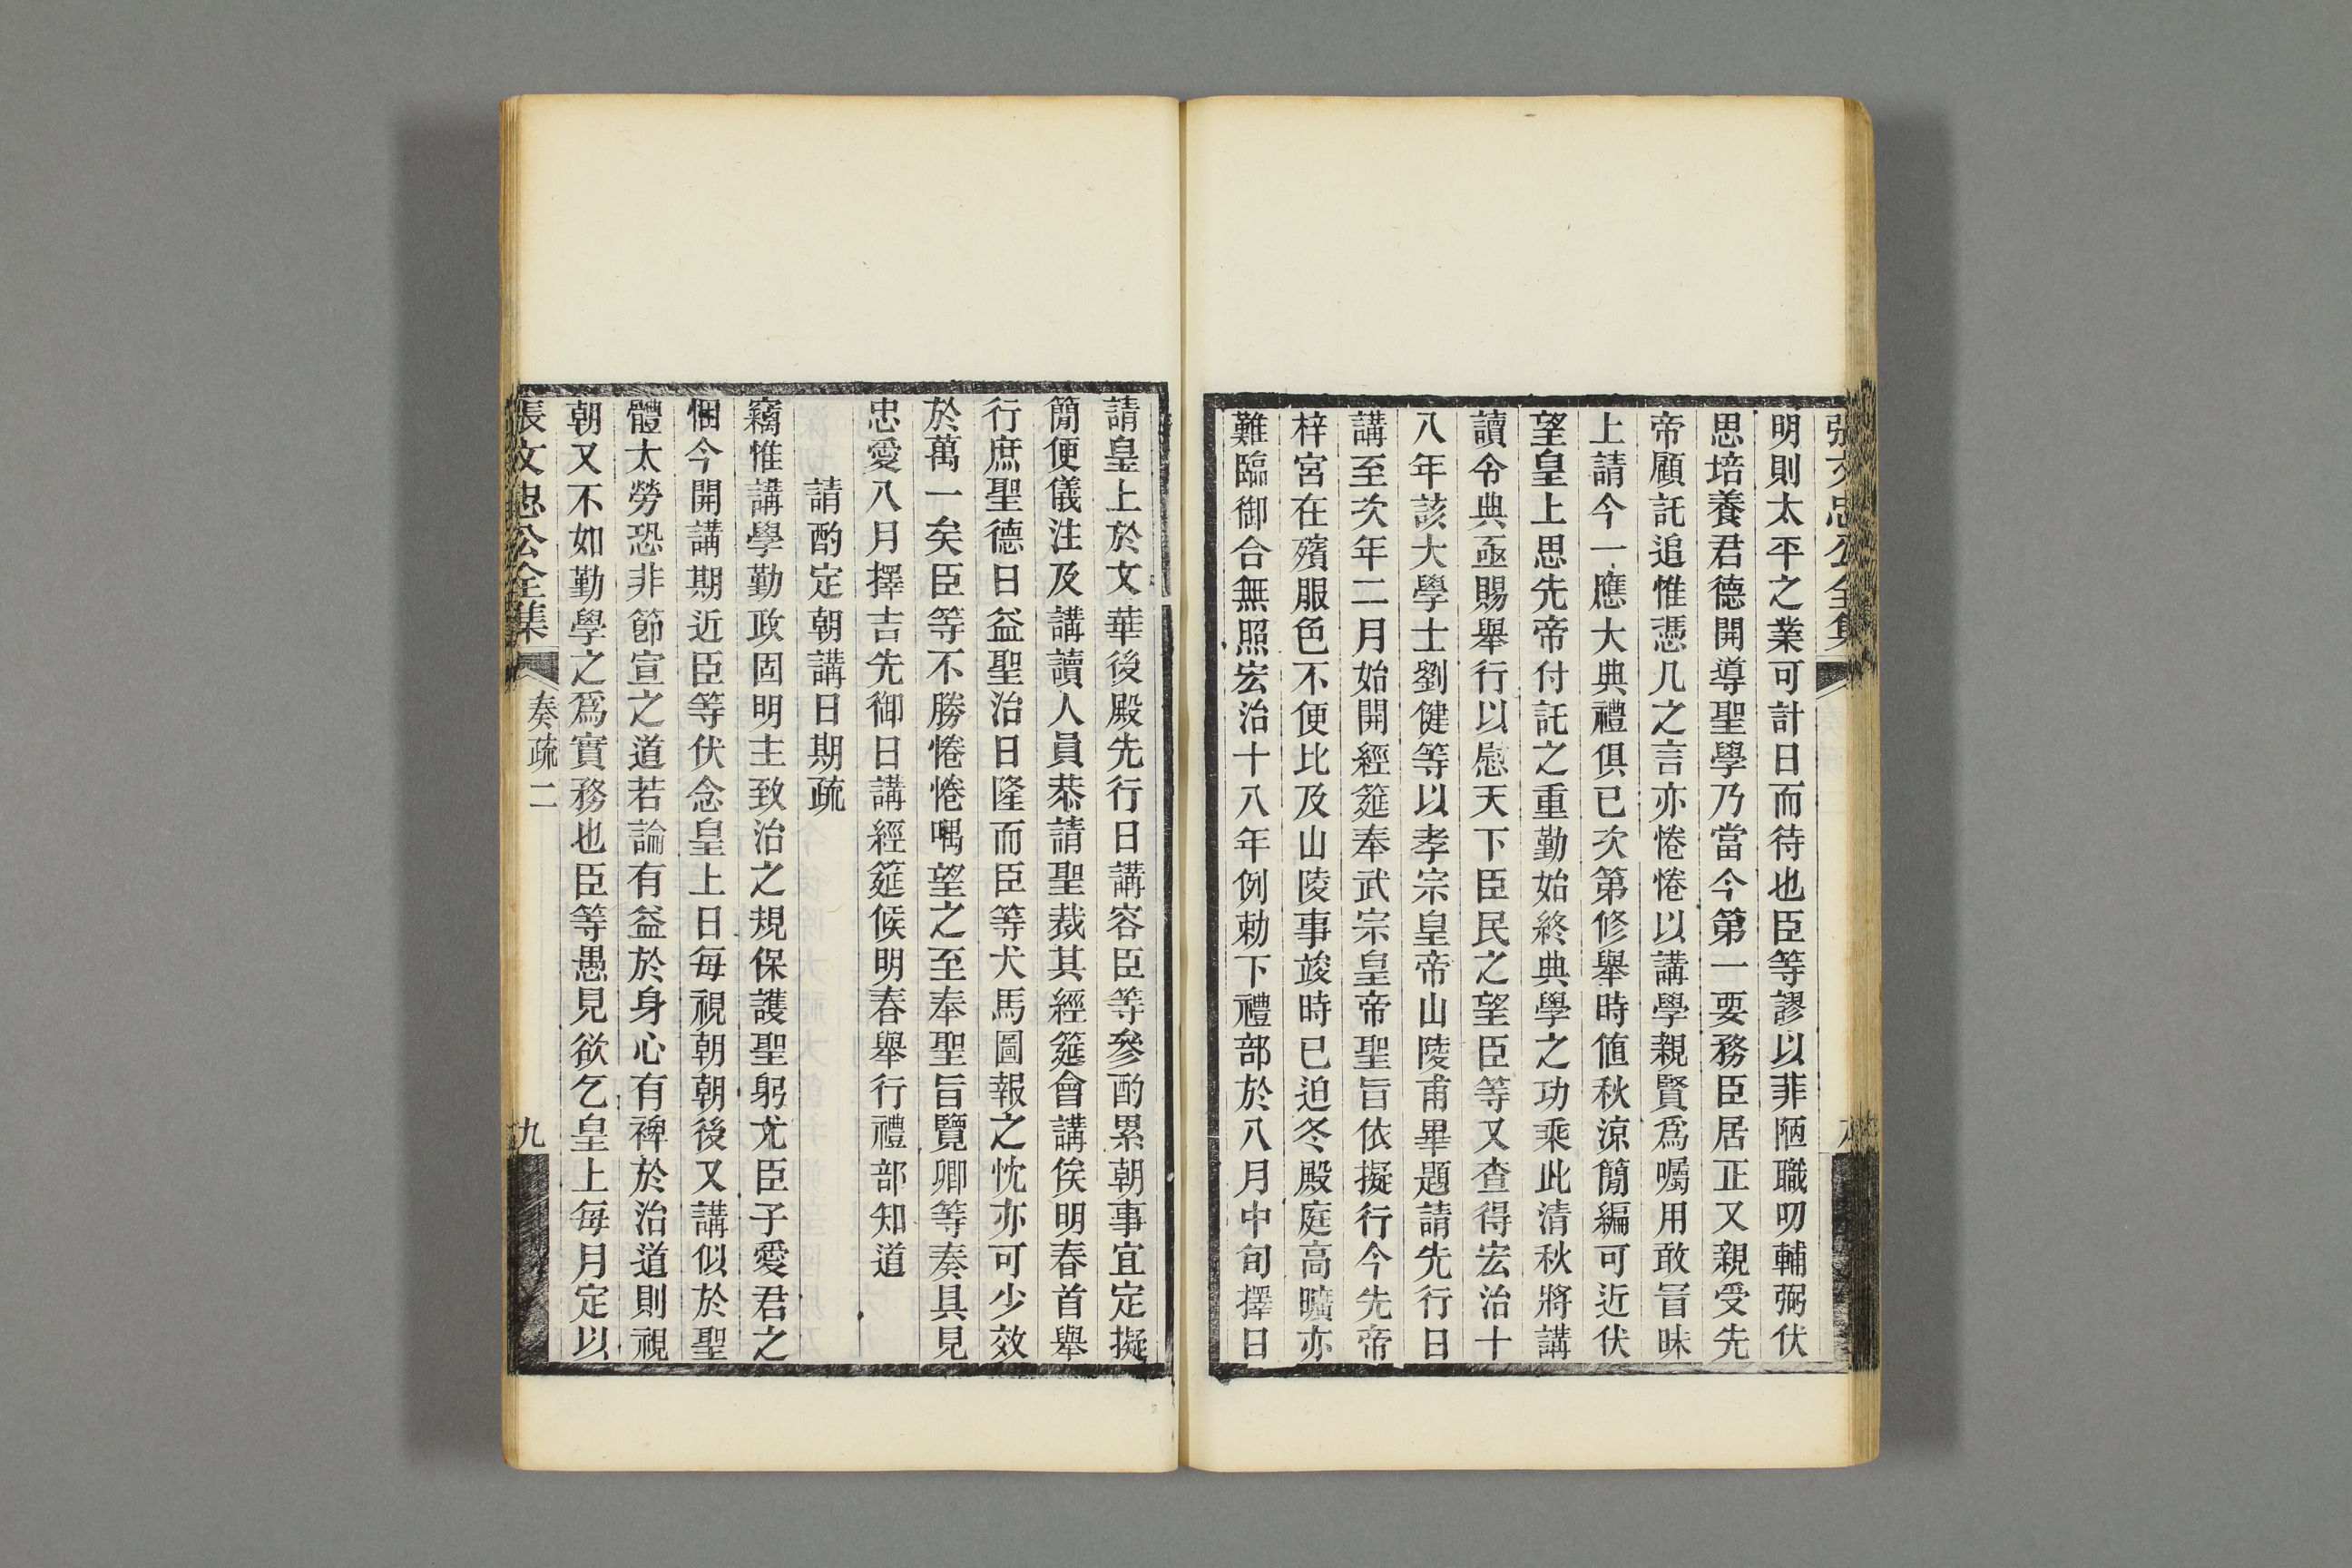 張文忠公全集
明則太平之業可計日而待也臣等謬以菲陋職叨輔弼伏
思培養君德開導聖學乃當今第一要務臣居正又親受先
帝顧託追惟憑几之言亦惓惓以講學親賢爲囑用敢冒昧
上請今一應大典禮俱已次第修舉時値秋涼簡編可近伏
望皇上思先帝付託之重勤始終典學之功乘此清秋將講
讀令典亟賜舉行以慰天下臣民之望臣等又查得宏治十
八年該大學士劉健等以孝宗皇帝山陵甫畢題請先行日
講至次年二月始開經筵奉武宗皇帝聖旨依擬行今先帝
梓宮在殯服色不便比及山陵事竣時已迫冬殿庭高曠亦
難臨御合無照宏治十八年例勅下禮部於八月中旬擇日
請皇上於文華後殿先行日講容臣等參酌累朝事宜定擬
簡便儀注及講讀人員恭請聖裁其經筵會講俟明春首舉
行庶聖德日益聖治日隆而臣等犬馬圖報之忱亦可少效
於萬一矣臣等不勝惓惓喁望之至奉聖旨覽卿等奏具見
忠愛八月擇吉先御日講經筵候明春舉行禮部知道
請酌定朝講日期疏
竊惟講學勤政固明主致治之規保護聖躬尤臣子愛君之
悃今開講期近臣等伏念皇上日每視朝朝後又講似於聖
體太勞恐非節宣之道若論有益於身心有裨於治道則視
朝又不如勤學之爲實務也臣等愚見欲乞皇上每月定以
張文忠公全集
奏疏二
九